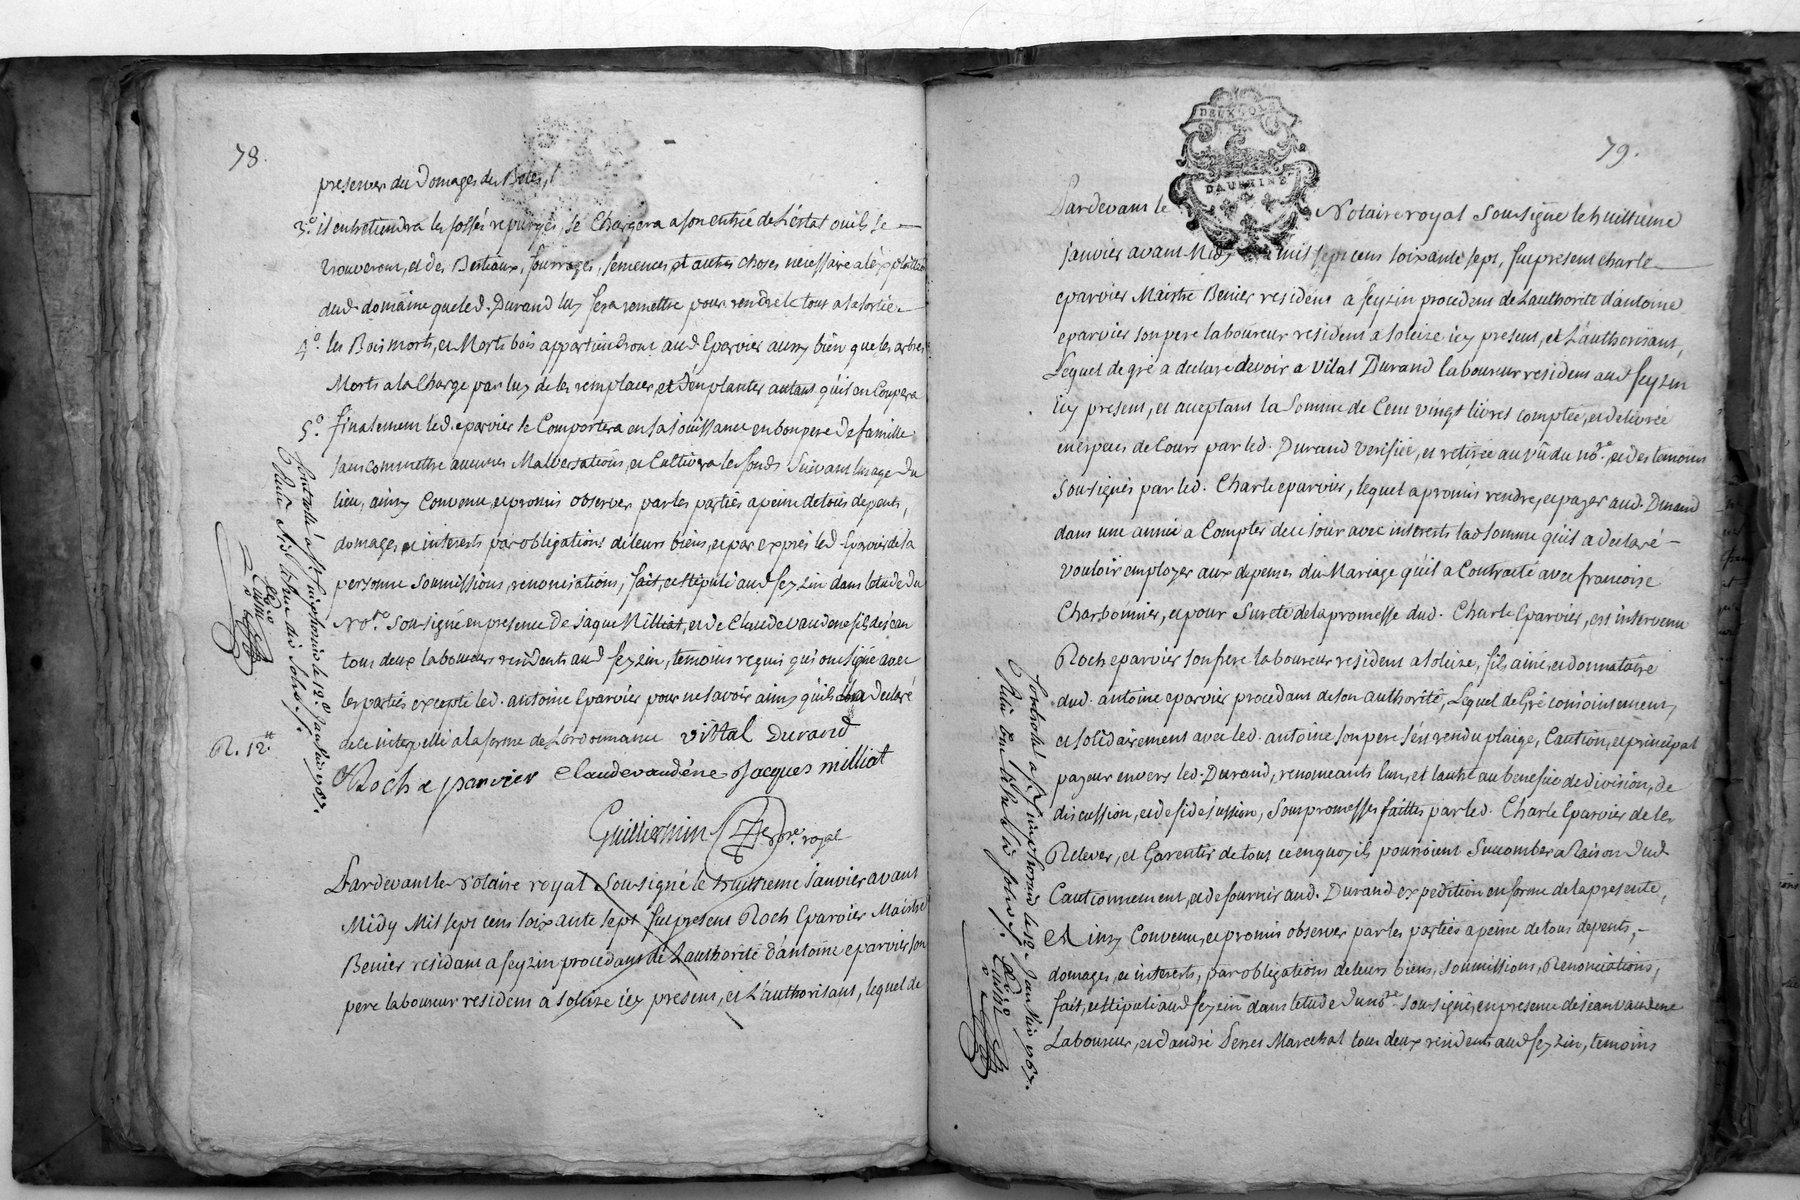 78.
preserver du Domages des Betes,
3.° il entretiendra les fossés repurgés, se Chargera a son entrée de L'éstat ou ils se
trouveront, et des Bestiaux, fourrages, semences, et autres choses nécessaire a léxploitation
dud. domaine que led. Durand luy fera remettre pour rendre le tout a la sortie
4.° les Bois morts, et Morts bois appartiendront aud Eparvier ainsy bien que les arbres
Morts a la Charge par luy de les remplacer, et d'en planter autant qu'il en Coupera
5.° finalement led. eparvier se Comportera en sa joüissance en bon pere de famille
sans commettre aucunes Malversations, et Cultivera les fonds suivant lusage du
lieu, ainsy Convenu, et promis observer par les partiés a peine de tous depents,
domages, et interests par obligations de leurs biens, et par exprés led. Eparvier de sa
personne soumissions, renonciations, fait, et stipulé aud feyzin dans letude du
No.re sousigné en presence de jaque Milliat, et de Claude vaudene fils de jean
tous deux laboureurs residents aud feyzin, temoins requis qui ont signé avec
les partiés excepté led. antoine Eparvier pour ne savoir ainsy qu'il a declaré
de ce interpellé a la forme de L'ordonnance vittal Durand
R. 12.tt
Roch eparvier Claudevaudéne Jacques milliat
Guillermin No.re royal
Controllé a st. simphorien le 12.e Janvier 1767.
Pardevant le Notaire royal sousigné le huitieme janvier avant
Midy Mil sept cens soixante sept fut present Roch Eparvier Maistre
Benier residant a feyzin procedant de L'authorité d'antoine eparvier son
pere laboureur resident a soleize icy present, et L'authorisant, lequel de
79.
DEUX SOLS
DAUPHINÉ
Pardevant le Notaire royal sousigné le huitiéme
janvier avant Midy mil sept cens soixante sept, fut present charle
eparvier Maistre Benier resident a feyzin procedent de L'authorité d'antoine
eparvier son pere laboureur resident a soleize icy present, et L'authorisant,
Lequel de gré a declaré devoir a Vital Durand laboureur resident aud feyzin
icy present, et acceptant la somme de Cent vingt livres comptée, et delivrée
en especes de Cours par led. Durand verifiée, et retirée au vû du no.re et des temoins
sousignés par led. Charle eparvier, lequel a promis rendre, et payer aud. Durand
dans une année a Compter de ce jour avec interests lad somme qu'il a declaré
vouloir employer aux depenses du Mariage qu'il a Contracté avec francoise
Charbonnier, et pour sureté de la promesse dud. Charle Eparvier, est intervenu
Roch eparvier son frere laboureur resident a soleize, fils ainé, et donnataire
dud. antoine eparvier procedant de son authorité, Lequel de Gré conjointement,
et solidairement avec led. antoine son pere s'est rendu plaige, Caution, et principal
payeur envers led. Durand, renonceants lun, et lautre au benefice de division, de
discussion, et de fidejussion, sous promesses faittes par led. Charle Eparvier de les
Relever, et Garentir de tout ce en quoy ils pourroient succomber a Raison dud
Cautionnement, et de fournir aud. Durand expedition en forme de la presente,
Ainsy Convenu, et promis observer par les partiés a peine de tous depents,
domages, et interests, par obligations de leurs biens, soumissions, Renonciations,
fait, et stipulé aud feyzin dans letude du no.re sousigné, en presence de jean vaudene
Laboureur, et d'andré Serres Marechal tous deux residents aud feyzin, temoins
Controllé a st. simphorien le 12.e Janvier 1767.